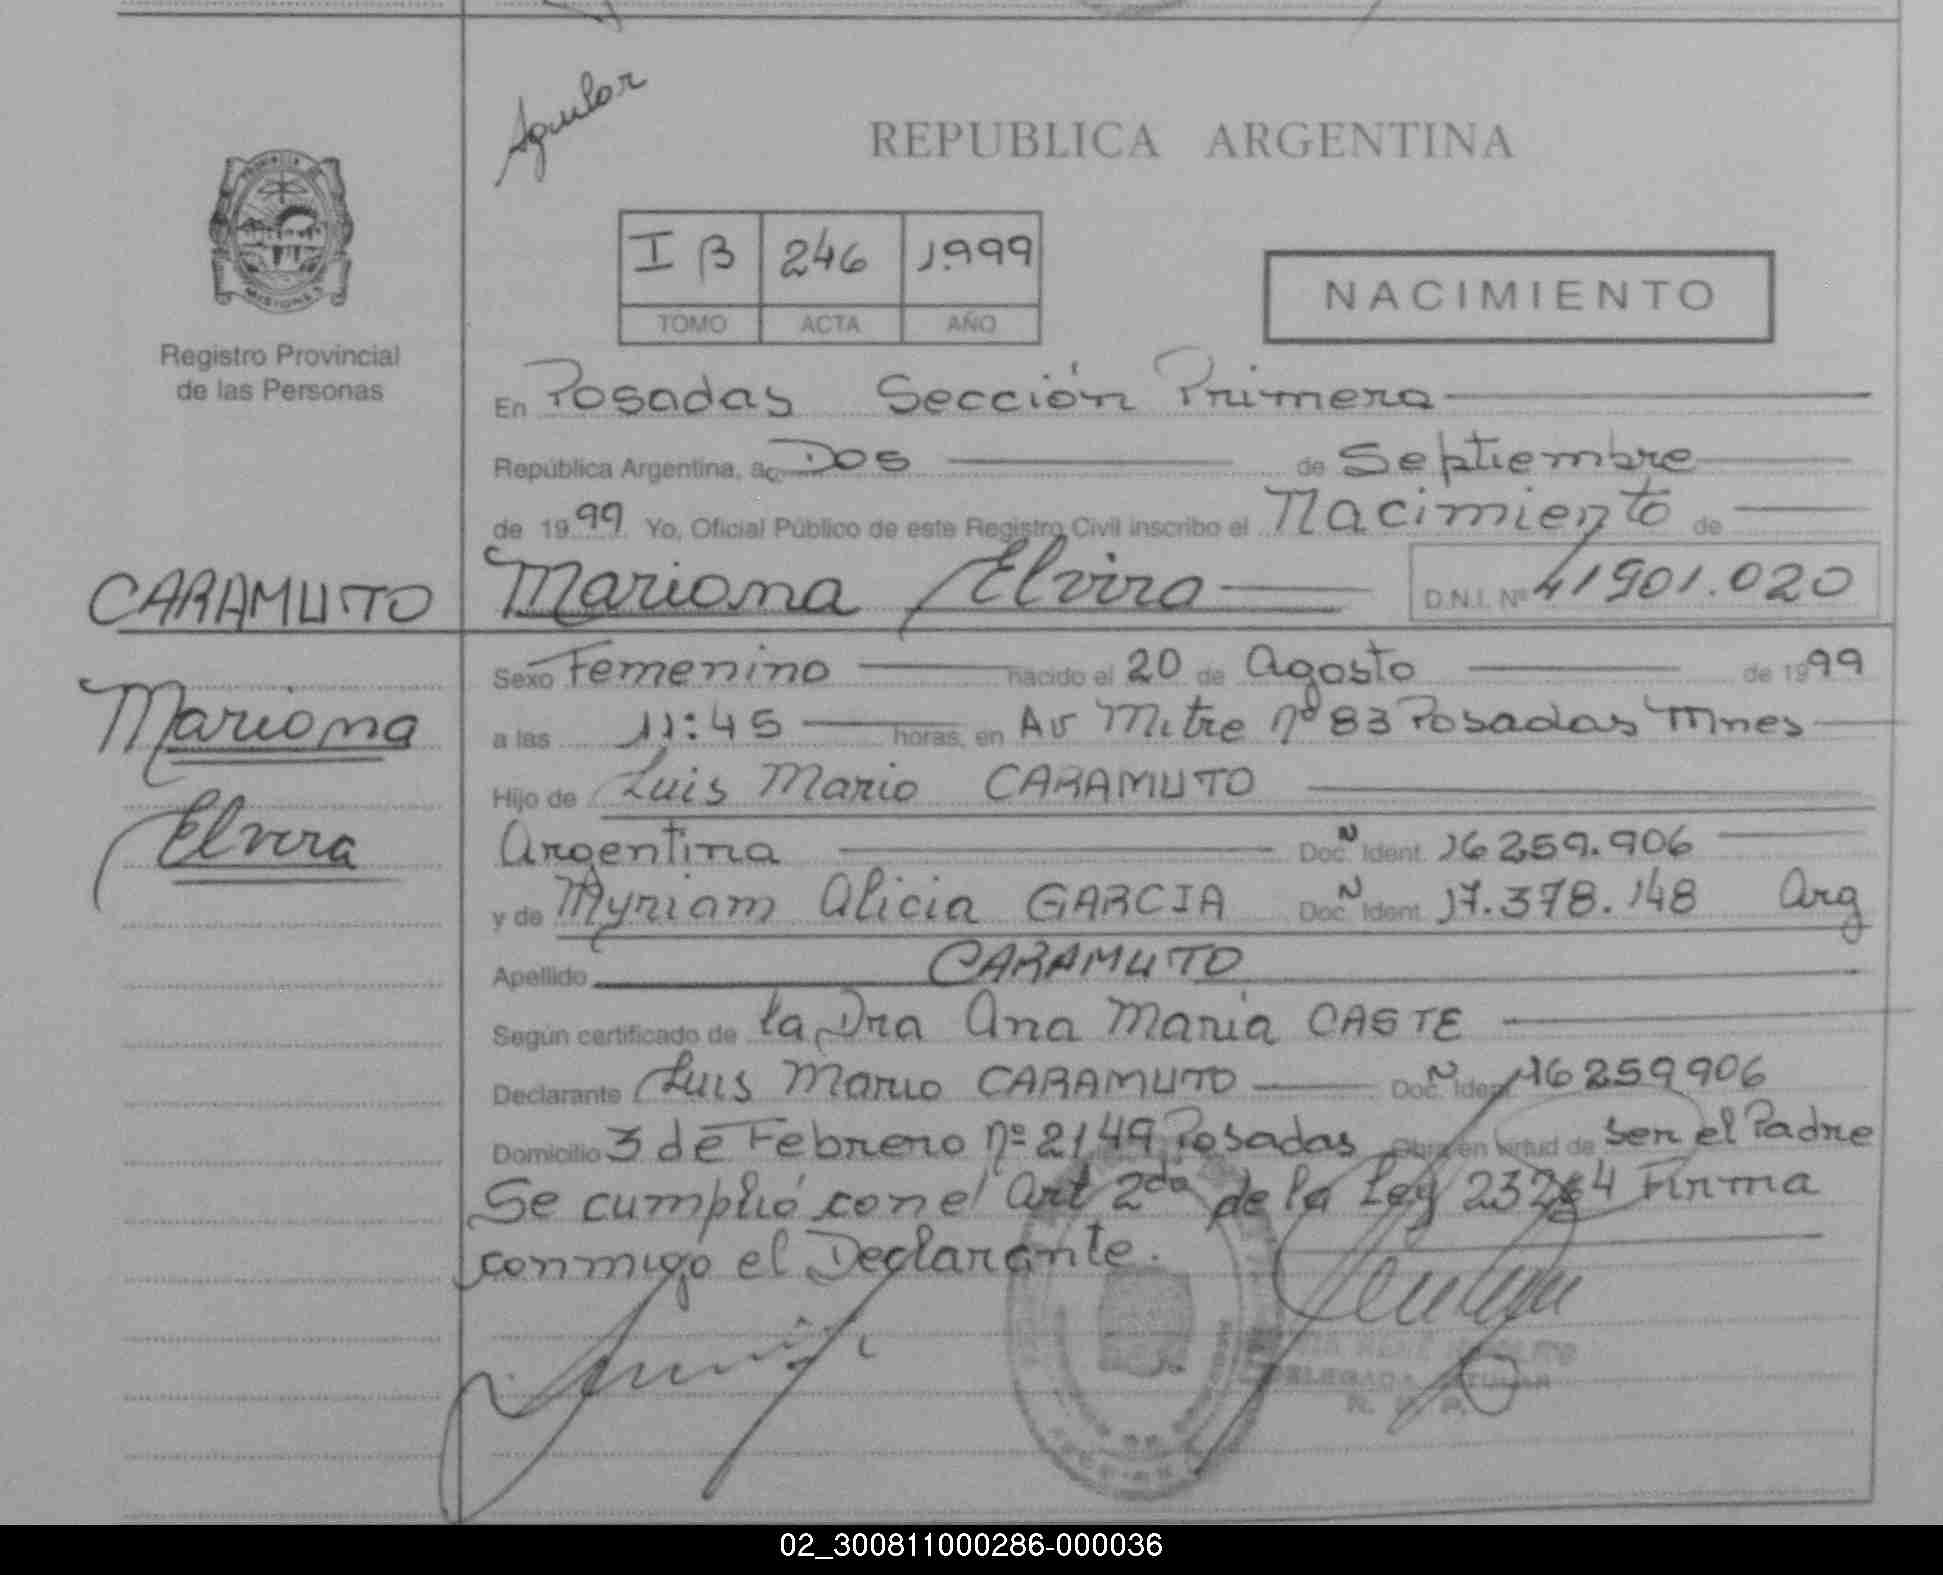 Aguilar
REPUBLICA ARGENTINA
I B 246 1.999
TOMO ACTA AÑO
NACIMIENTO
MISIONES
Registro Provincial
de las Personas
En Posadas Sección Primera
República Argentina, a Dos de Septiembre
de 1999 Yo, Oficial Público de este Registro Civil inscribo el Nacimiento de
CARAMUTO
Mariana Elvira D.N.I. Nº 41901.020
Mariana
Elvira
Sexo Femenino nacido el 20 de Agosto de 1999
a las 11:45 horas, en Av Mitre nº 83 Posadas Mnes
Hijo de Luis Mario CARAMUTO
Argentina Doc. Ident. 16259.906
y de Myriam Alicia GARCIA Doc. Ident. 17.378.148 Arg
Apellido CARAMUTO
Según certificado de la Dra Ana Maria CASTE
Declarante Luis Mario CARAMUTO Doc. Ident. 16259906
Domicilio 3 de Febrero nº 2149 Posadas Obra en virtud de ser el Padre
Se cumplió con el Art 2da de la Ley Firma
conmigo el Declarante.
DELEGADA TITULAR
R. P. P.
02_300811000286-000036